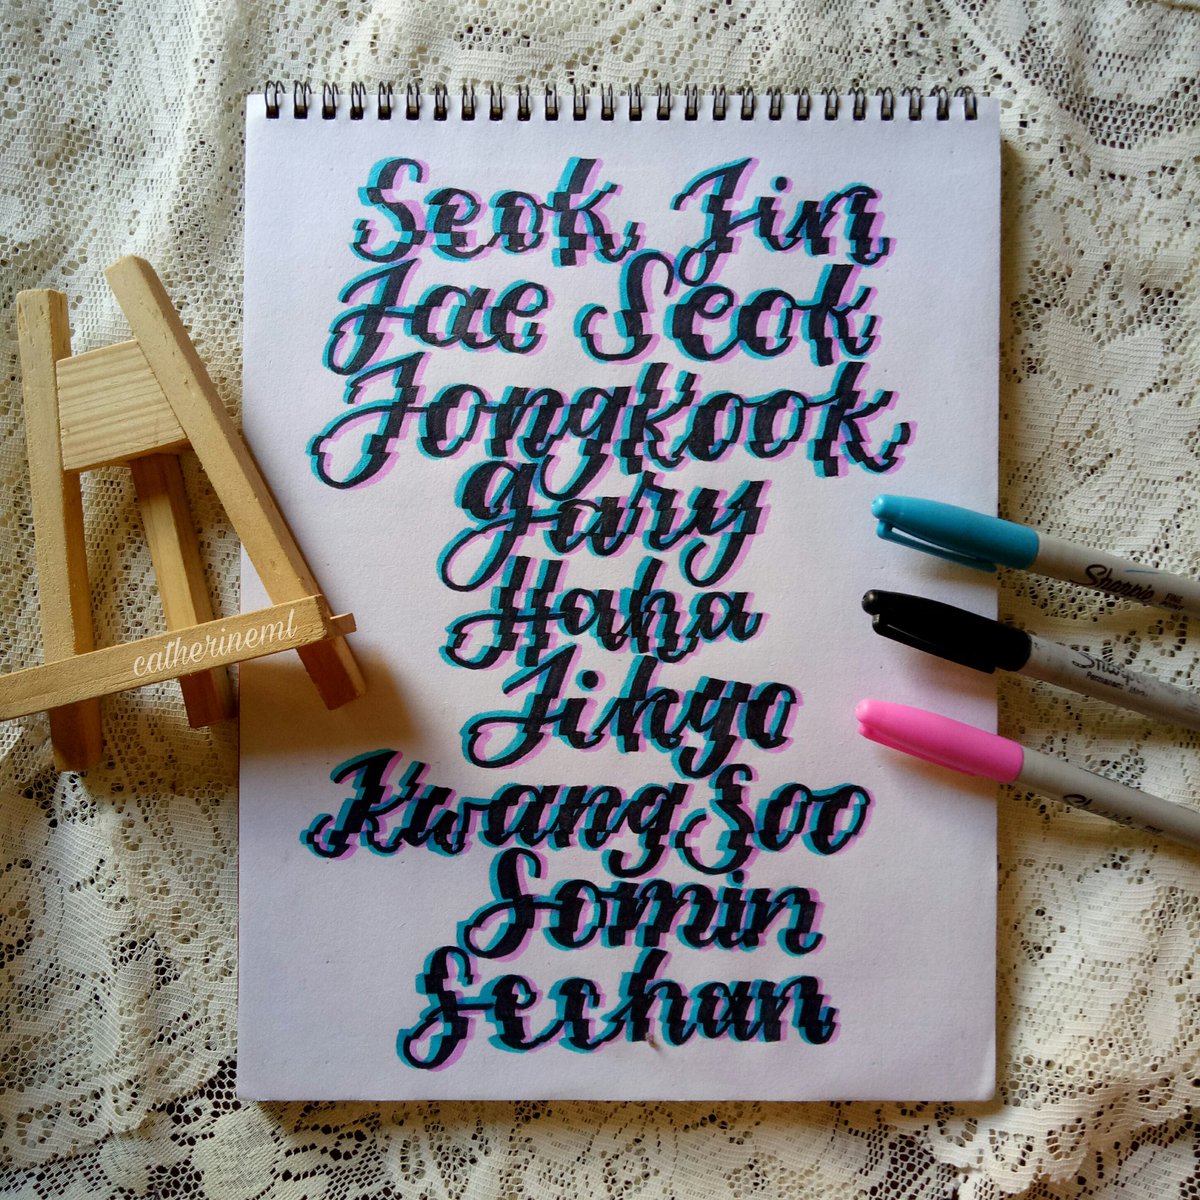 Seok Jin
Jae Seok
Jongkook
gary
Haha
Jihyo
KwangSoo
Somin
Sechan
catherineml
Sharpie